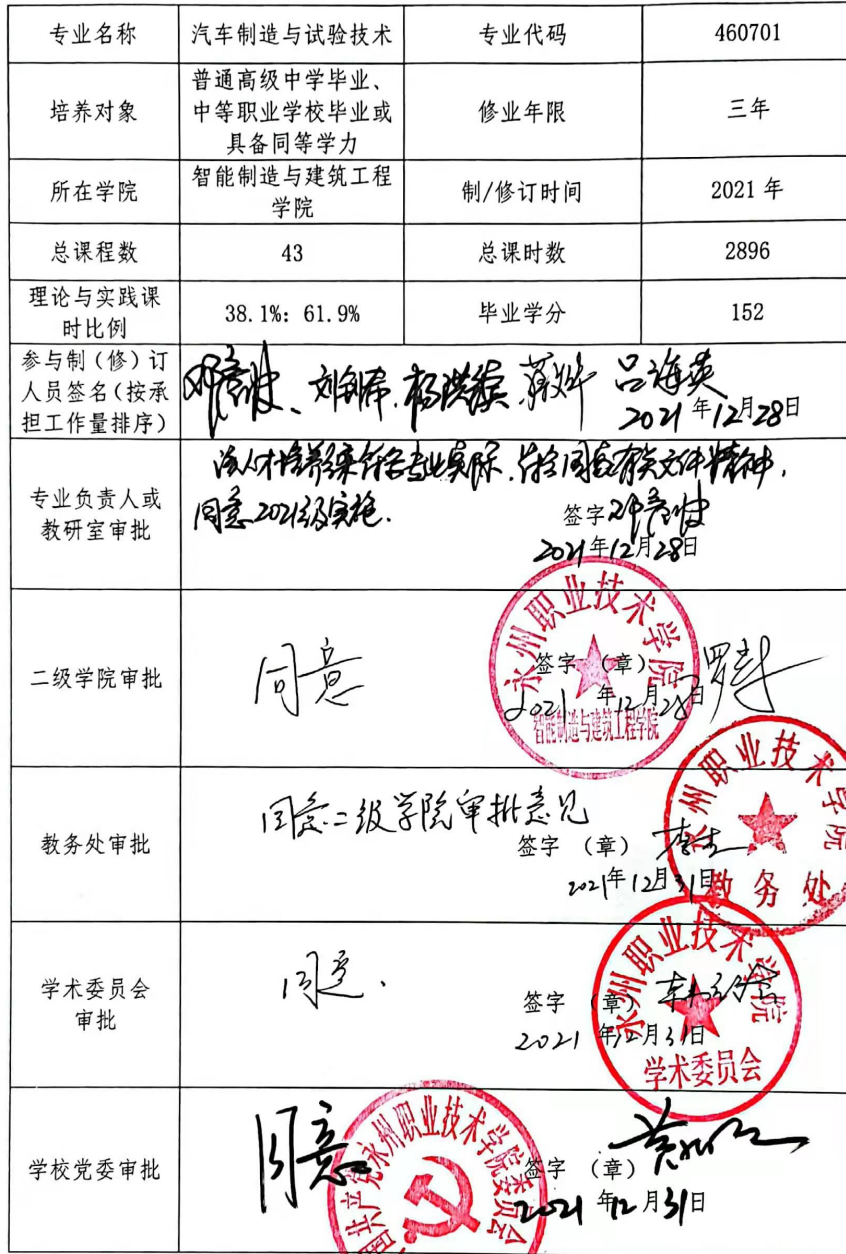 专业名称 汽车制造与试验技术 专业代码 460701
普通高级中学毕业、
培养对象 中等职业学校毕业或 修业年限 三年
具备同等学力
所在学院 智能制造与建筑工程 制/修订时间 2021 年
学院
总课程数 43 总课时数 2896
理论与实践课 38.1%: 61.9% 毕业学分 152
时比例
参与制（修）订
人员签名（按承
担工作量排序）
吕海英
2021 年12月28日
专业负责人或
教研室审批
同意2021级实施.
签字
2021年12月28日
二级学院审批
同意
签字 （章）
2021 年12月28日
永州职业技术学院
智能制造与建筑工程学院
教务处审批
同意二级学院审批意见
签字 （章）
2021年12月31日
永州职业技术学院
教务处
学术委员会
审批
同意.
签字 （章）
2021 年12月31日
永州职业技术学院
学术委员会
学校党委审批
同意
签字 （章）
2021 年12月31日
国共产党永州职业技术学院委员会